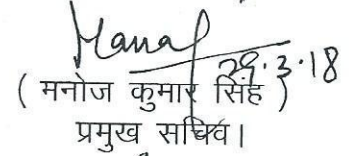 29.3.18
( मनोज कुमार सिंह )
प्रमुख सचिव।